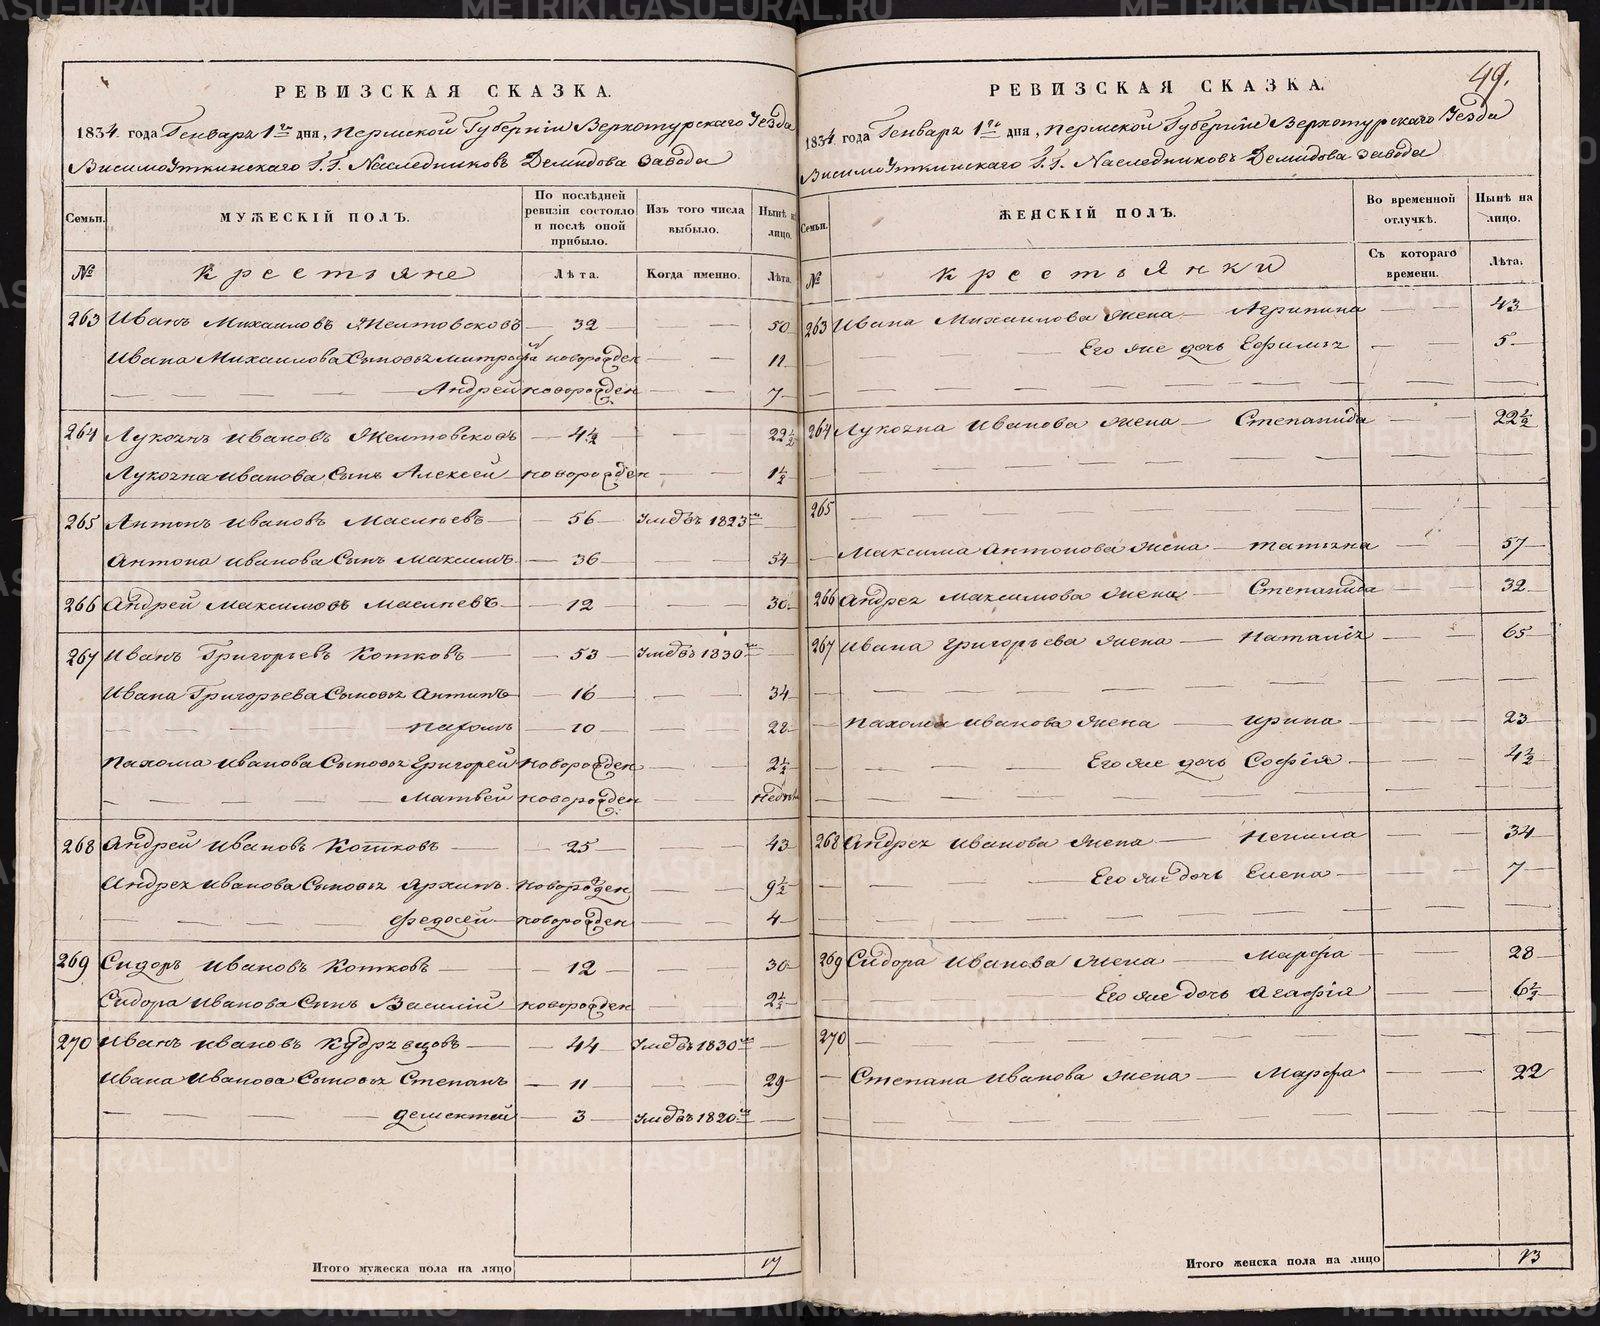 РЕВИЗСКАЯ СКАЗКА.
1834. года Генваря 1го дня, Пермской Губерніи Верхотурскаго Уезда
ВисимоУткинскаго Г.Г. Наследниковъ Демидова завода
Семьи. МУЖЕСКІЙ ПОЛЪ. По послѣдней ревизіи состояло и послѣ оной прибыло. Изъ того числа выбыло. Нынѣ на лицо.
№ Крестьяне Лѣта. Когда именно. Лѣта.
263 Иванъ Михаиловъ Желтовсковъ 32 50
Ивана Михаилова Сыновья Митрофанъ новорожден 11
Андрей новорожден 7
264 Лукоянъ Ивановъ Желтовсковъ 4½ 22½
Лукояна Иванова Сынъ Алексей новорожден 1½
265 Антонъ Ивановъ Масляевъ 56 Умеръ 1823го
Антона Иванова Сынъ Максимъ 36 54
266 Андрей Максимовъ Масляевъ 12 30
267 Иванъ Григорьевъ Котковъ 53 Умеръ 1830го
Ивана Григорьева Сыновья Антипъ 16 34
Пахомъ 10 28
Пахома Иванова Сыновья Григорей новорожден 2½
Матвей новорожден недѣль
268 Андрей Ивановъ Котковъ 25 43
Андрея Иванова Сыновья Архипъ новорожден 9½
Федосей новорожден 4
269 Сидоръ Ивановъ Котковъ 12 30
Сидора Иванова Сынъ Василій новорожден 2½
270 Иванъ Ивановъ Кудрявцовъ 44 Умеръ 1830го
Ивана Иванова Сыновья Степанъ 11 29
Дементей 3 Умеръ 1820го
Итого мужеска пола на лицо 17
49.
РЕВИЗСКАЯ СКАЗКА.
1834. года Генваря 1го дня, Пермской Губерніи Верхотурскаго Уезда
ВисимоУткинскаго Г.Г. Наследниковъ Демидова завода
Семьи. ЖЕНСКІЙ ПОЛЪ. Во временной отлучкѣ. Нынѣ на лицо.
№ Крестьянки Съ котораго времени. Лѣта.
263 Ивана Михаилова жена Агрипина 43
Его же дочь Ефимья 5
264 Лукояна Иванова жена Степанида 22½
265
Максима Антонова жена Татьяна 57
266 Андрея Максимова жена Степанида 32
267 Ивана Григорьева жена Наталія 65
Пахома Иванова жена Ирина 23
Его же дочь Софія 4½
268 Андрея Иванова жена Ненила 34
Его же дочь Елена 7
269 Сидора Иванова жена Марфа 28
Его же дочь Агафія 6½
270
Степана Иванова жена Марфа 22
Итого женска пола на лицо 13
METRIKI.GASO-URAL.RU